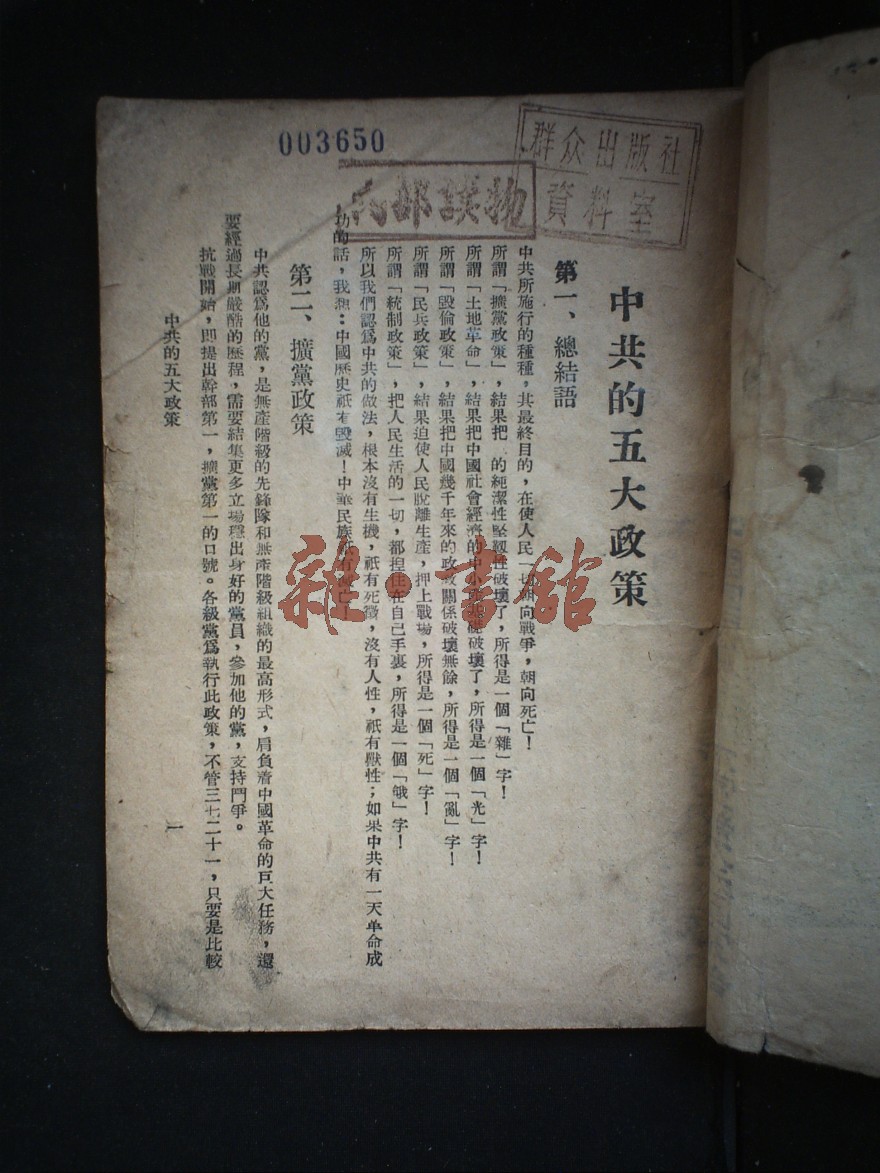 003650
群众出版社
資料室
内部讀物
中共的五大政策
第一、總結語
中共所施行的種種，其最終目的，在使人民一切朝向戰爭，朝向死亡！
所謂「擴黨政策」，結果把 的純潔性堅韌性破壞了，所得是一個「雜」字！
所謂「土地革命」，結果把中國社會經濟的中小 基礎破壞了，所得是一個「光」字！
所謂「毀倫政策」，結果把中國幾千年來的政教關係破壞無餘，所得是一個「亂」字！
所謂「民兵政策」，結果迫使人民脫離生產，押上戰場，所得是一個「死」字！
所謂「統制政策」，把人民生活的一切，都揑住在自己手裏，所得是一個「餓」字！
所以我們認爲中共的做法，根本沒有生機，祇有死徵，沒有人性，祇有獸性；如果中共有一天革命成
功的話，我想：中國歷史祇有毀滅！中華民族祇有 亡！
第二、擴黨政策
中共認爲他的黨，是無產階級的先鋒隊和無產階級組織的最高形式，肩負着中國革命的巨大任務，還
要經過長期嚴酷的歷程，需要結集更多立場穩出身好的黨員，參加他的黨，支持鬥爭。
抗戰開始，即提出幹部第一，擴黨第一的口號。各級黨爲執行此政策，不管三七二十一，只要是比較
中共的五大政策
一
雜·書館